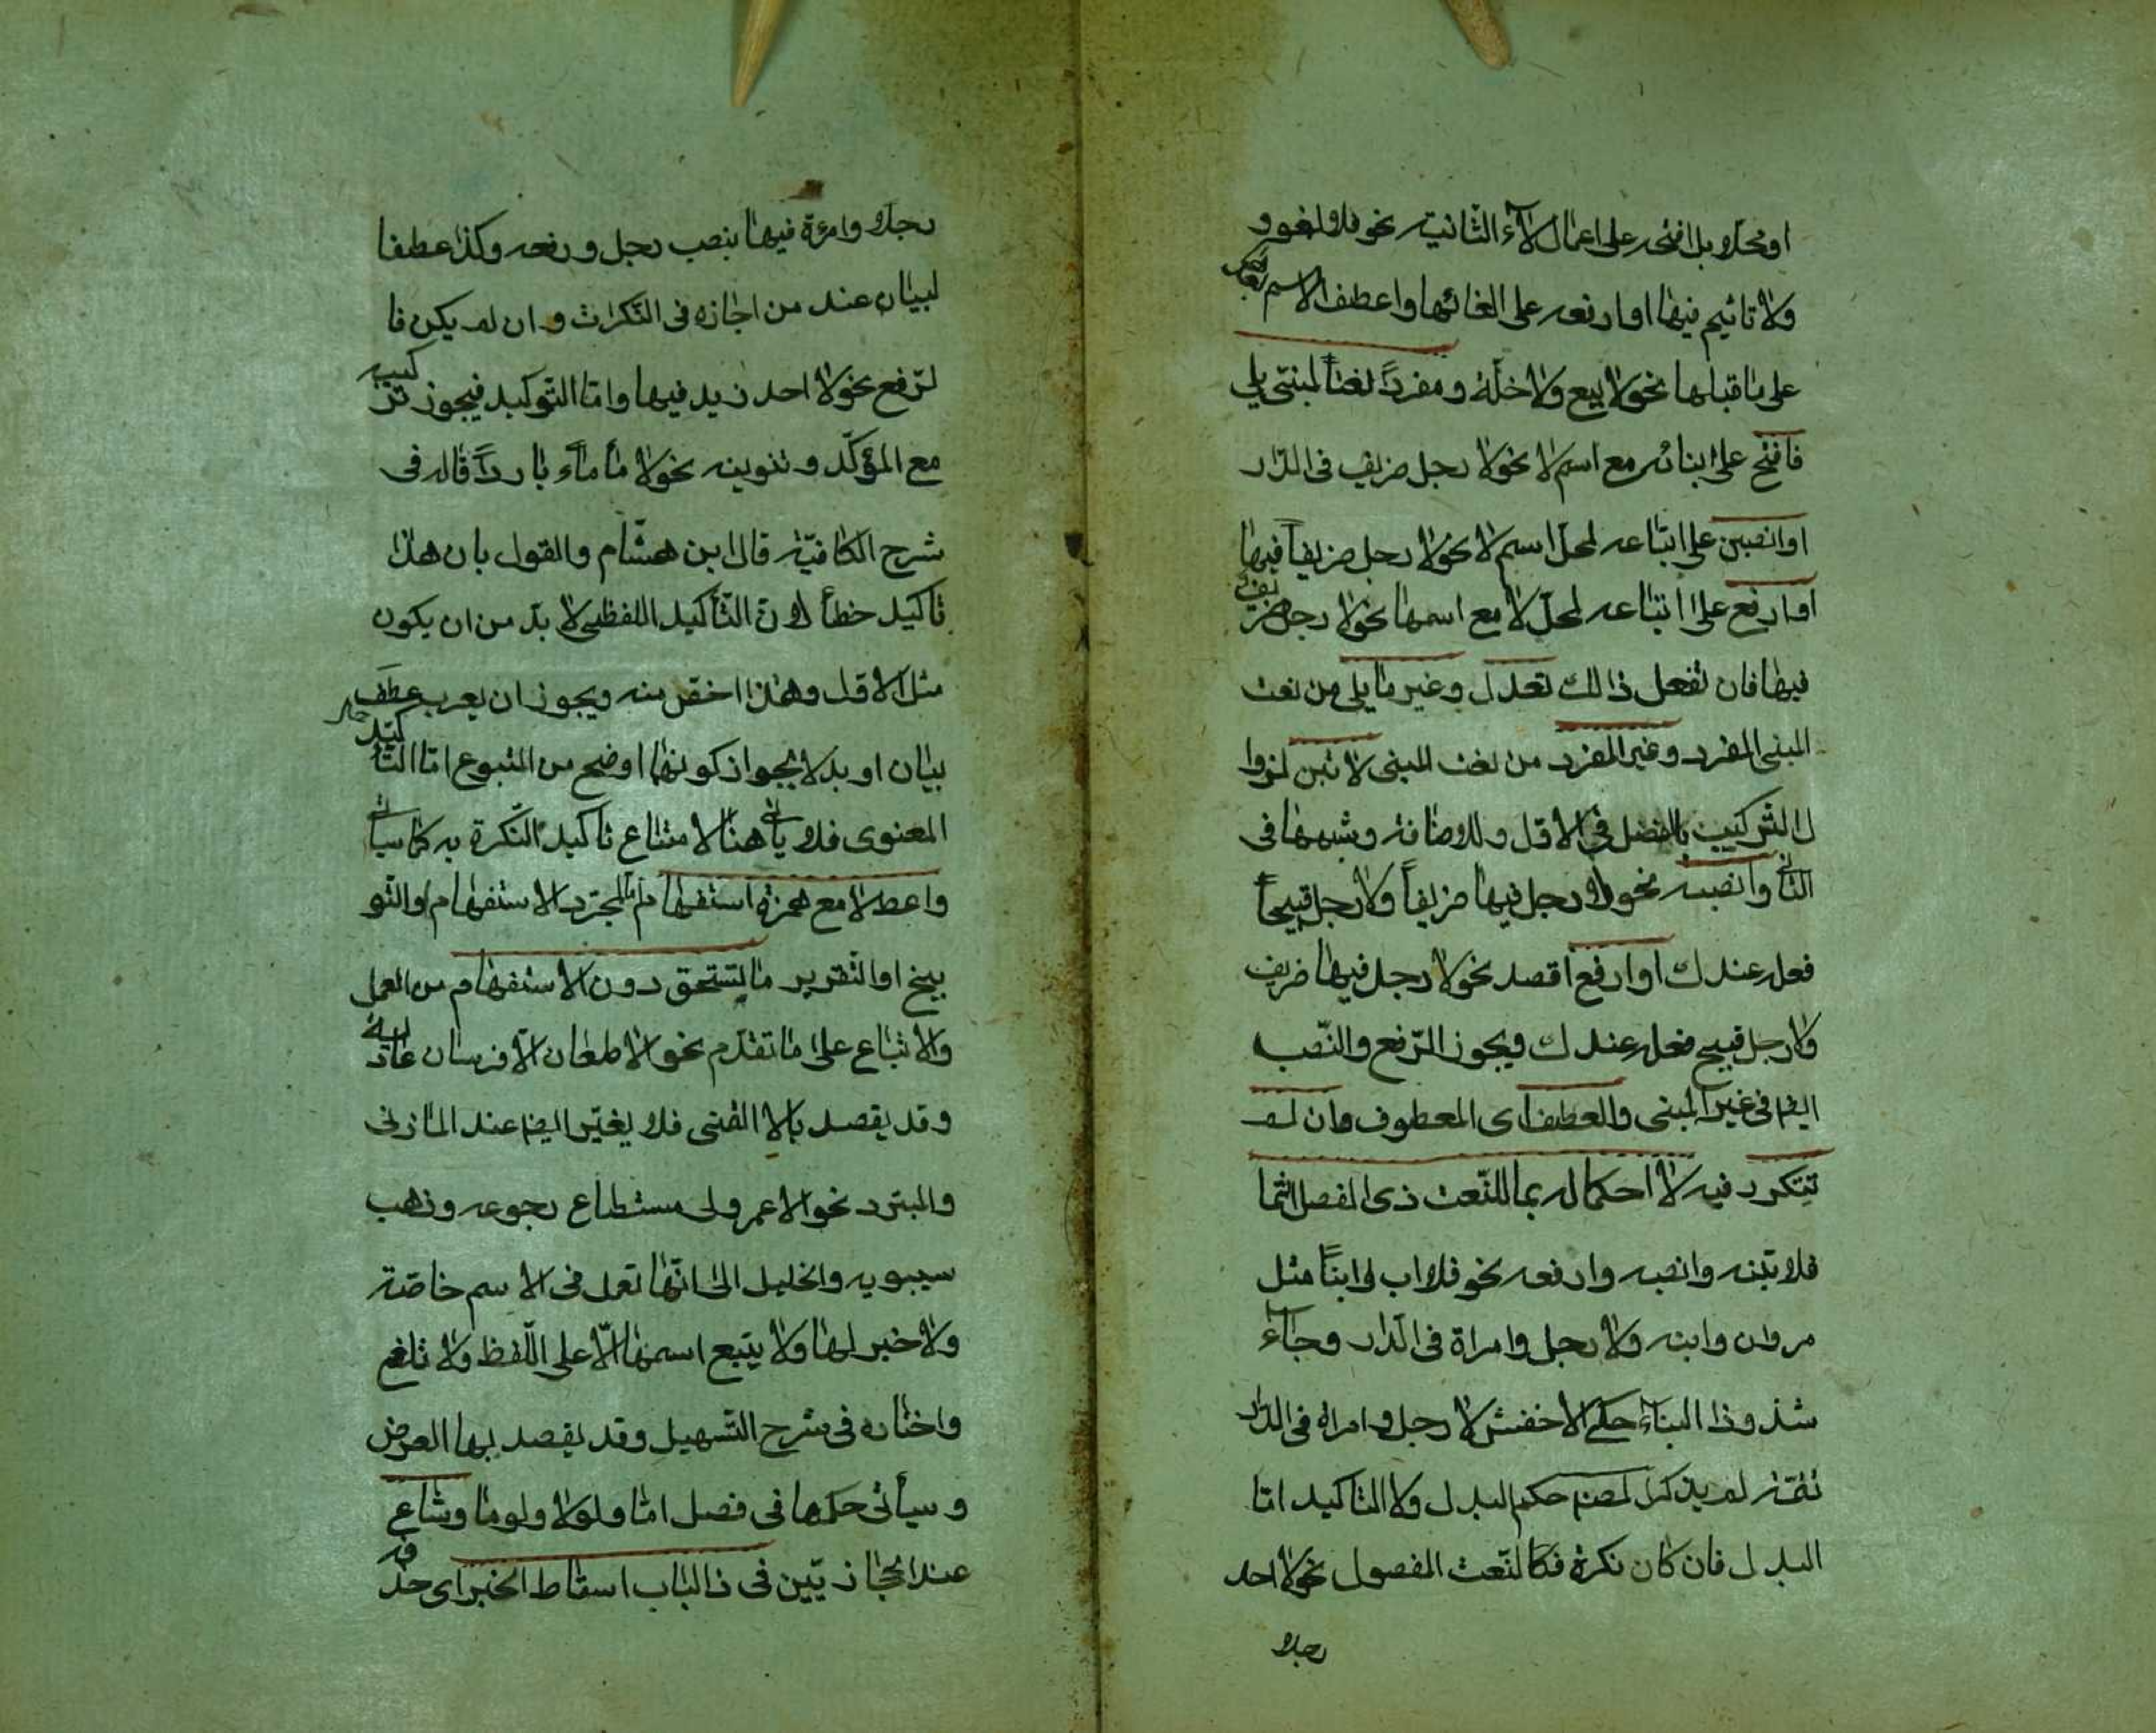 او محلا بل افتحه على اعمال لاء الثانية نحو فلا لغو و
ولا تاثيم فيها او ارفعه على الغائها واعطف الاسم بعد
على ما قبلها نحو لا بيع ولا خلة ومفردًا نعتًا لمبنى يلي
فافتح على بنائه مع اسم لا نحو لا رجل ضريف في الدار
او انصبن على اتباعه لمحل اسم لا نحو لا رجل ضريفاً فيها
او ارفع على اتباعه لمحل لا مع اسمها نحو لا رجل ضريف
فيها فان تفعل ذالك تعدل وغير ما يلى من نعت
المبنى المفرد وغير المفرد من نعت المبنى لا تبن لزوا
ل التركيب بالفصل في الاول وللاضافة وشبهها فى
الثانى وانصبه نحو لا رجل فيها ضريفاً ولا رجل قبيحاً
فعله عندك او ارفع اقصد نحو لا رجل فيها ضريف
ولا رجل قبيح فعله عندك ويجوز الرّفع والنّصب
ايضا فى غير المبنى والعطف اى المعطوف وان لم
تتكرر فيه لا احكما له بما للنّعت ذى الفصل انتما
فلا تبنه وانصبه وارفعه نحو فلا اب و ابناً مثل
مروان وابنه ولا رجل وامراة فى الدار وجاء
شذوذا البناء حكى الاخفش لا رجل و امراة فى الدار
تتمّة لم يذكر المصنف حكم البدل ولا التاكيد امّا
البدل فان كان نكرة فكالنّعت المفصول نحو لا احد
رجلا
رجلا وامرءة فيها بنصب رجل ورفعه وكذا عطف ا
لبيان عند من اجازه فى النّكرات و ان لم يكن فا
لرّفع نحو لا احد زيد فيها وامّا التّوكيد فيجوز تركيبه
مع المؤكّد و تنوينه نحو لا ماء ماء بارداً قاله فى
شرح الكافيّة قال ابن هشّام والقول بان هذا
تاكيد خطأ لانّ التّأكيد اللفظى لا بدّ من ان يكون
مثل الاوّل وهذا اخصّ منه ويجوز ان يعرب عطف
بيان او بدلا لجواز كونهما اوضح من المتبوع امّا التّاكيد
المعنوى فلا ياتى هنا لامتناع تاكيد النّكرة به كما سياتى
واعط لا مع همزة استفهام امّا لمجرّد الاستفهام او التّو
بيخ او التّقرير ما تستحق دون الاستفهام من العمل
والاتباع على ما تقدّم نحو الا طعان الا فرسان عادية
وقد يقصد بالا التمنى فلا يغيّر ايضا عند المازنى
والمبرّد نحو الا عمر ولى مستطاع رجوعه وذهب
سيبويه والخليل الى انّها تعمل فى الاسم خاصّة
ولا خبر لها ولا يتبع اسمها الّا على اللّفظ ولا تلغى
واختاره فى شرح التّسهيل وقد يقصد بها العرض
و سيأتى حكمها فى فصل امّا ولولا ولوما وشاع
عند الحجازيّين فى ذا الباب اسقاط الخبر اى حذفه